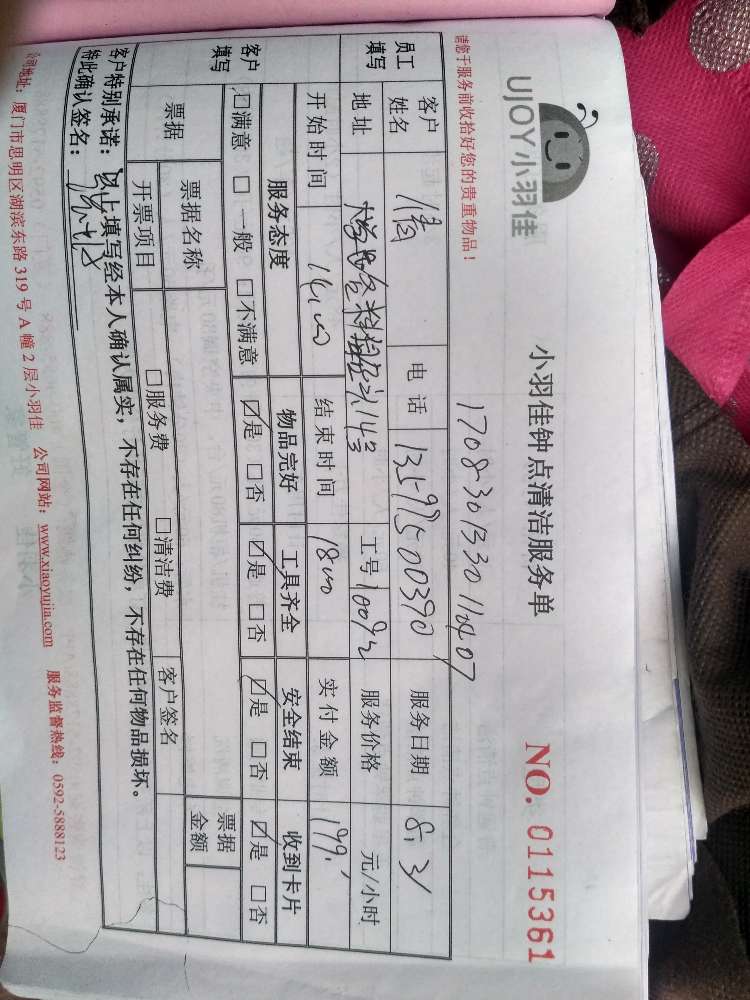 UJOY小羽佳
小羽佳钟点清洁服务单
NO. 0115361
请您于服务前收拾好您的贵重物品！
员工填写
客户姓名 电话 13599500390 服务日期 8.31
地址 工号 10092 服务价格 元/小时
开始时间 14:00 结束时间 18:00 实付金额 199.
客户填写
服务态度 物品完好 工具齐全 安全结束 收到卡片
□满意 □一般 □不满意 ☑是 □否 ☑是 □否 ☑是 □否 ☑是 □否
票据 票据名称 票据金额
开票项目 □服务费 □清洁费 客户签名
客户特别承诺：以上填写经本人确认属实，不存在任何纠纷，不存在任何物品损坏。
特此确认签名：
公司地址：厦门市思明区湖滨东路 319 号 A 幢 2 层小羽佳 公司网站：www.xiaoyujia.com 服务监督热线：0592-5888123